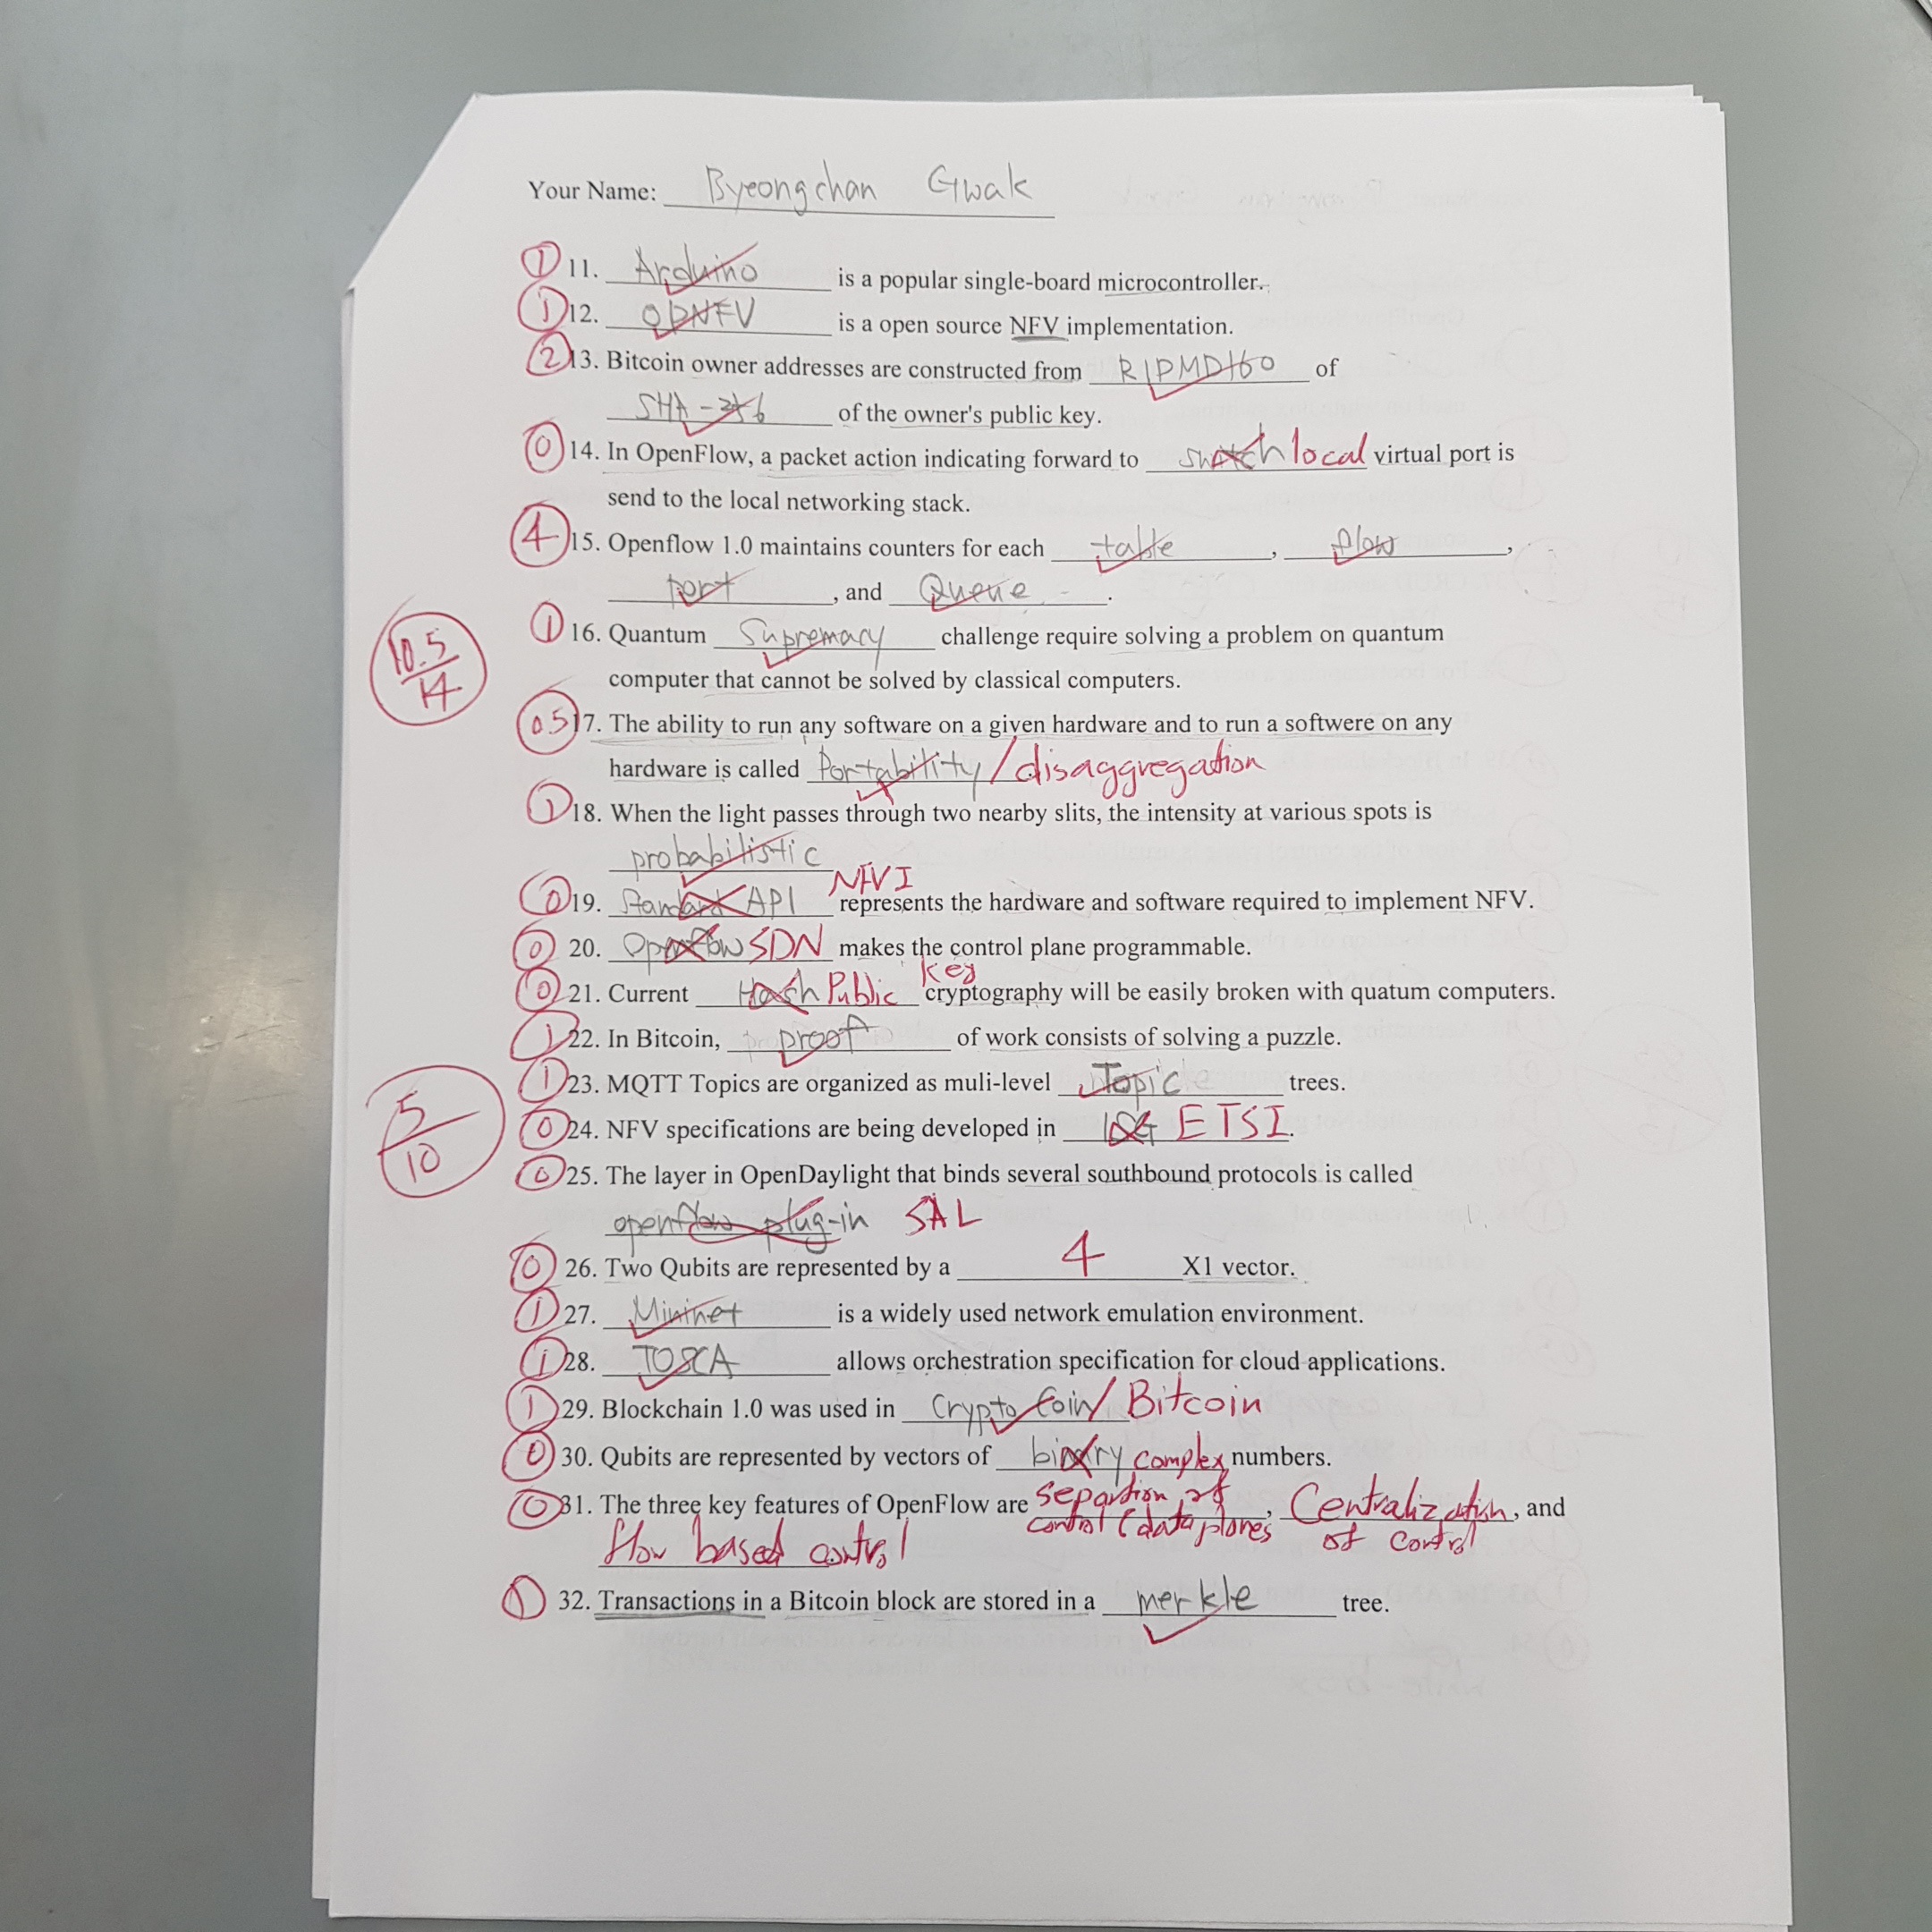 Your Name: Byeongchan Gwak
1 11. Arduino is a popular single-board microcontroller.
1 12. OPNFV is a open source NFV implementation.
2 13. Bitcoin owner addresses are constructed from RIPMD160 of
SHA-256 of the owner's public key.
0 14. In OpenFlow, a packet action indicating forward to switch local virtual port is
send to the local networking stack.
4 15. Openflow 1.0 maintains counters for each table, flow,
port, and Queue.
1 16. Quantum Supremacy challenge require solving a problem on quantum
10.5/14
computer that cannot be solved by classical computers.
0.5 17. The ability to run any software on a given hardware and to run a softwere on any
hardware is called Portability/disaggregation
1 18. When the light passes through two nearby slits, the intensity at various spots is
probabilistic
NFVI
0 19. Standard API represents the hardware and software required to implement NFV.
0 20. Openflow SDN makes the control plane programmable.
0 21. Current Hash Public key cryptography will be easily broken with quatum computers.
1 22. In Bitcoin, proof of work consists of solving a puzzle.
1 23. MQTT Topics are organized as muli-level Topic trees.
5/10
0 24. NFV specifications are being developed in ETSI.
0 25. The layer in OpenDaylight that binds several southbound protocols is called
openflow plug-in SAL
0 26. Two Qubits are represented by a 4 X1 vector.
1 27. Mininet is a widely used network emulation environment.
1 28. TOSCA allows orchestration specification for cloud applications.
1 29. Blockchain 1.0 was used in Crypto Coin/Bitcoin
0 30. Qubits are represented by vectors of binary complex numbers.
0 31. The three key features of OpenFlow are separtion of control (data planes, Centralization of control, and
flow based control
1 32. Transactions in a Bitcoin block are stored in a merkle tree.